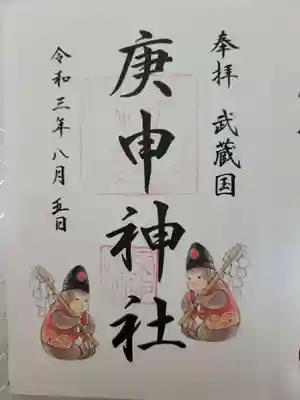 奉拝 武蔵国
庚申神社
令和三年八月五日